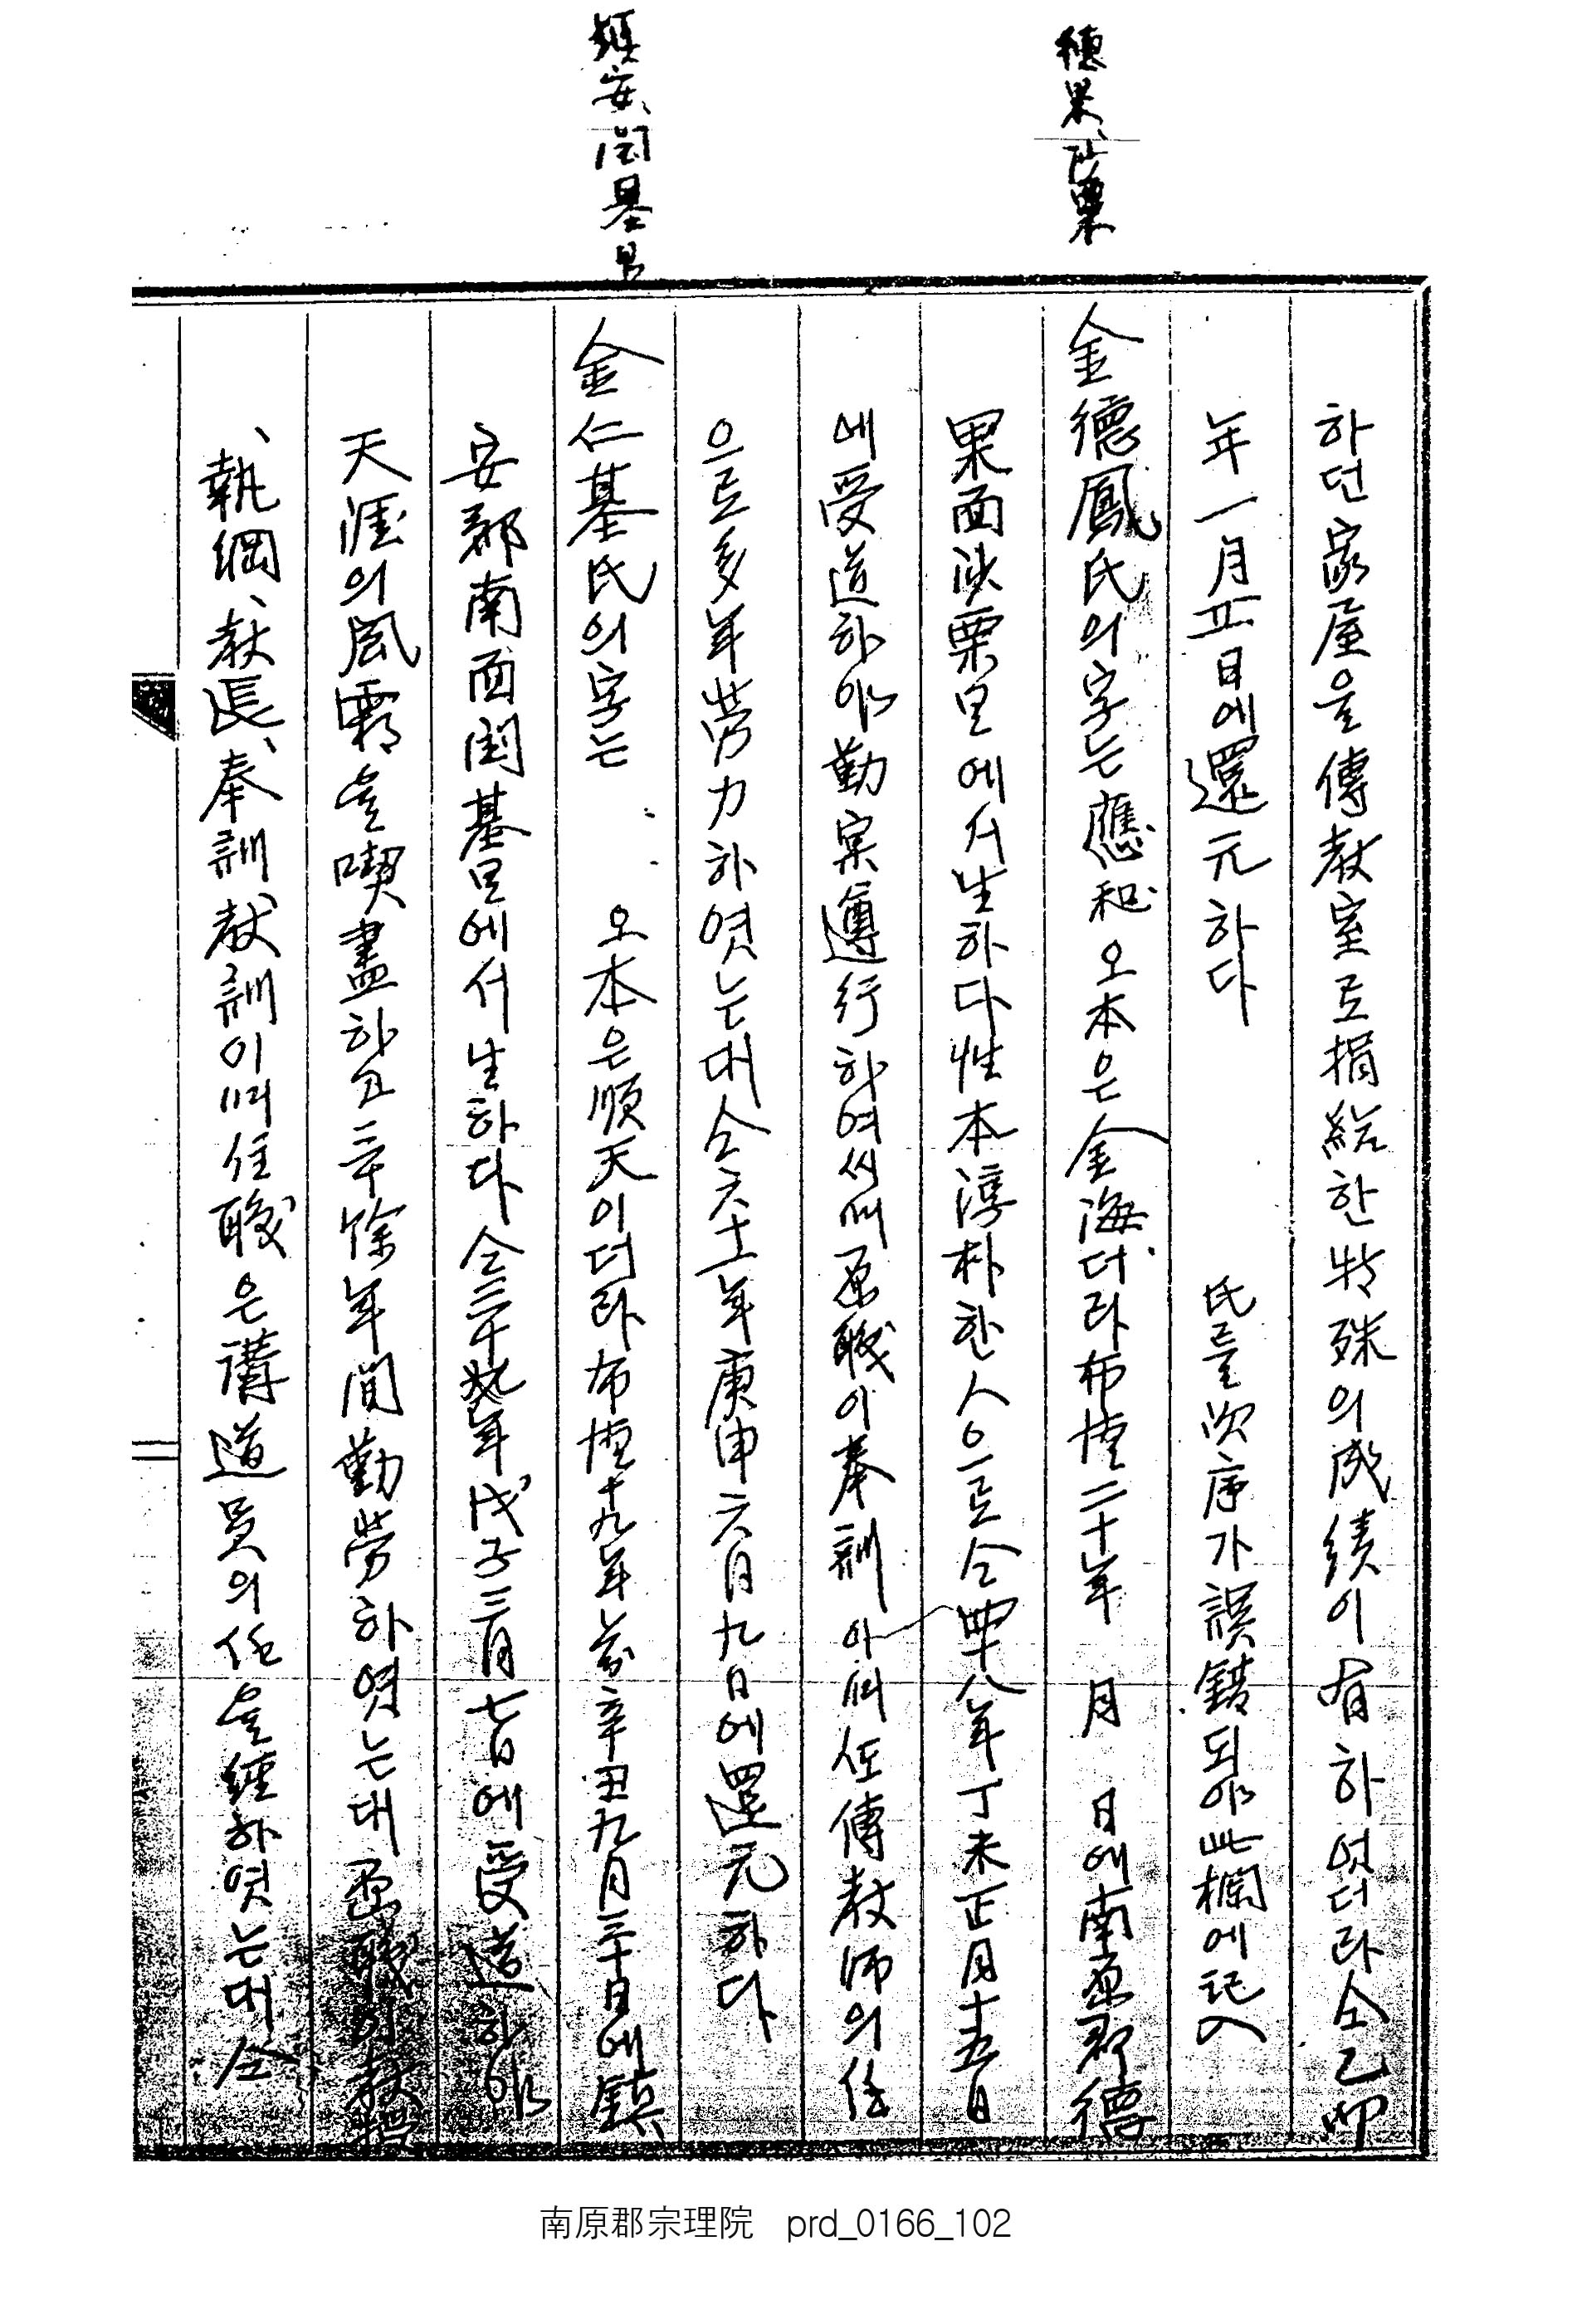 德果、沙栗
鎭安、閏基里
하던家屋을傳敎室로捐給한特殊의成績이有하엿더라仝乙卯
年一月廿五日에還元하다 氏를次序가誤錯되야此欄에記入
金德鳳氏의字는應和오本은金海더라布德二十年 月 日에南原郡德
果面沙栗里에서生하다性本淳朴한人으로仝四十八年丁未正月十五日
에受道하야勤宗遵行하여씨며原職이奉訓이며任傳敎師의任
으로多年勞力하엿는대仝六十一年庚申六月九日에還元하다
金仁基氏의字는 오本은順天이더라布德十九年 辛丑九月三十日에鎭
安郡南面閏基里에서生하다仝二十九年戊子三月七日에受道하야
天涯의風霜을喫盡하고三十餘年間勤勞하엿는대原職
、執綱、敎長、奉訓、敎訓이며任職은講道員의任을經하엿는대仝
南原郡宗理院 prd_0166_102